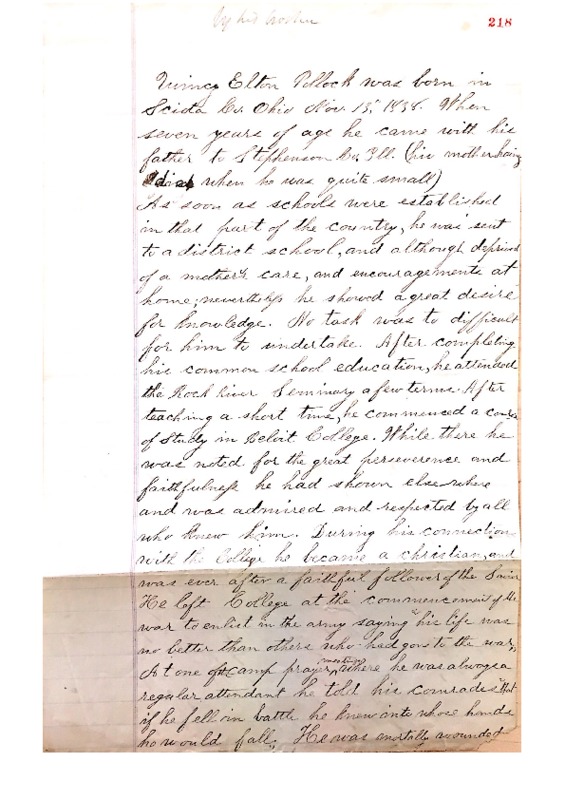 by his brother
218
Quincy Elton Pollock was born in
Sciota Co. Ohio Nov. 13, 1838. When
seven years of age he came with his
father to Stephenson Co. Ill. (his mother having
died when he was quite small)
As soon as schools were established
in that part of the country, he was sent
to a district school, and although deprived
of a mother's care, and encouragements at
home; nevertheless he showed a great desire
for knowledge. No task was to difficult
for him to undertake. After completing
his common school education, he attended
the Rock River Seminary a few terms. After
teaching a short time, he commenced a course
of Study in Beloit College. While there he
was noted for the great perseverence and
faithfulness he had shown elsewhere
and was admired and respected by all
who knew him. During his connection
with the College he became a christian, and
was ever after a faithful follower of the Savior
He left College at the commencement of the
war to enlist in the army saying "his life was
no better than others who had gone to the war,"
At one of camp prayer meeting, where he was always a
regular attendant he told his comrades "that
if he fell in battle he knew into whose hands
he would fall." He was mortally wounded